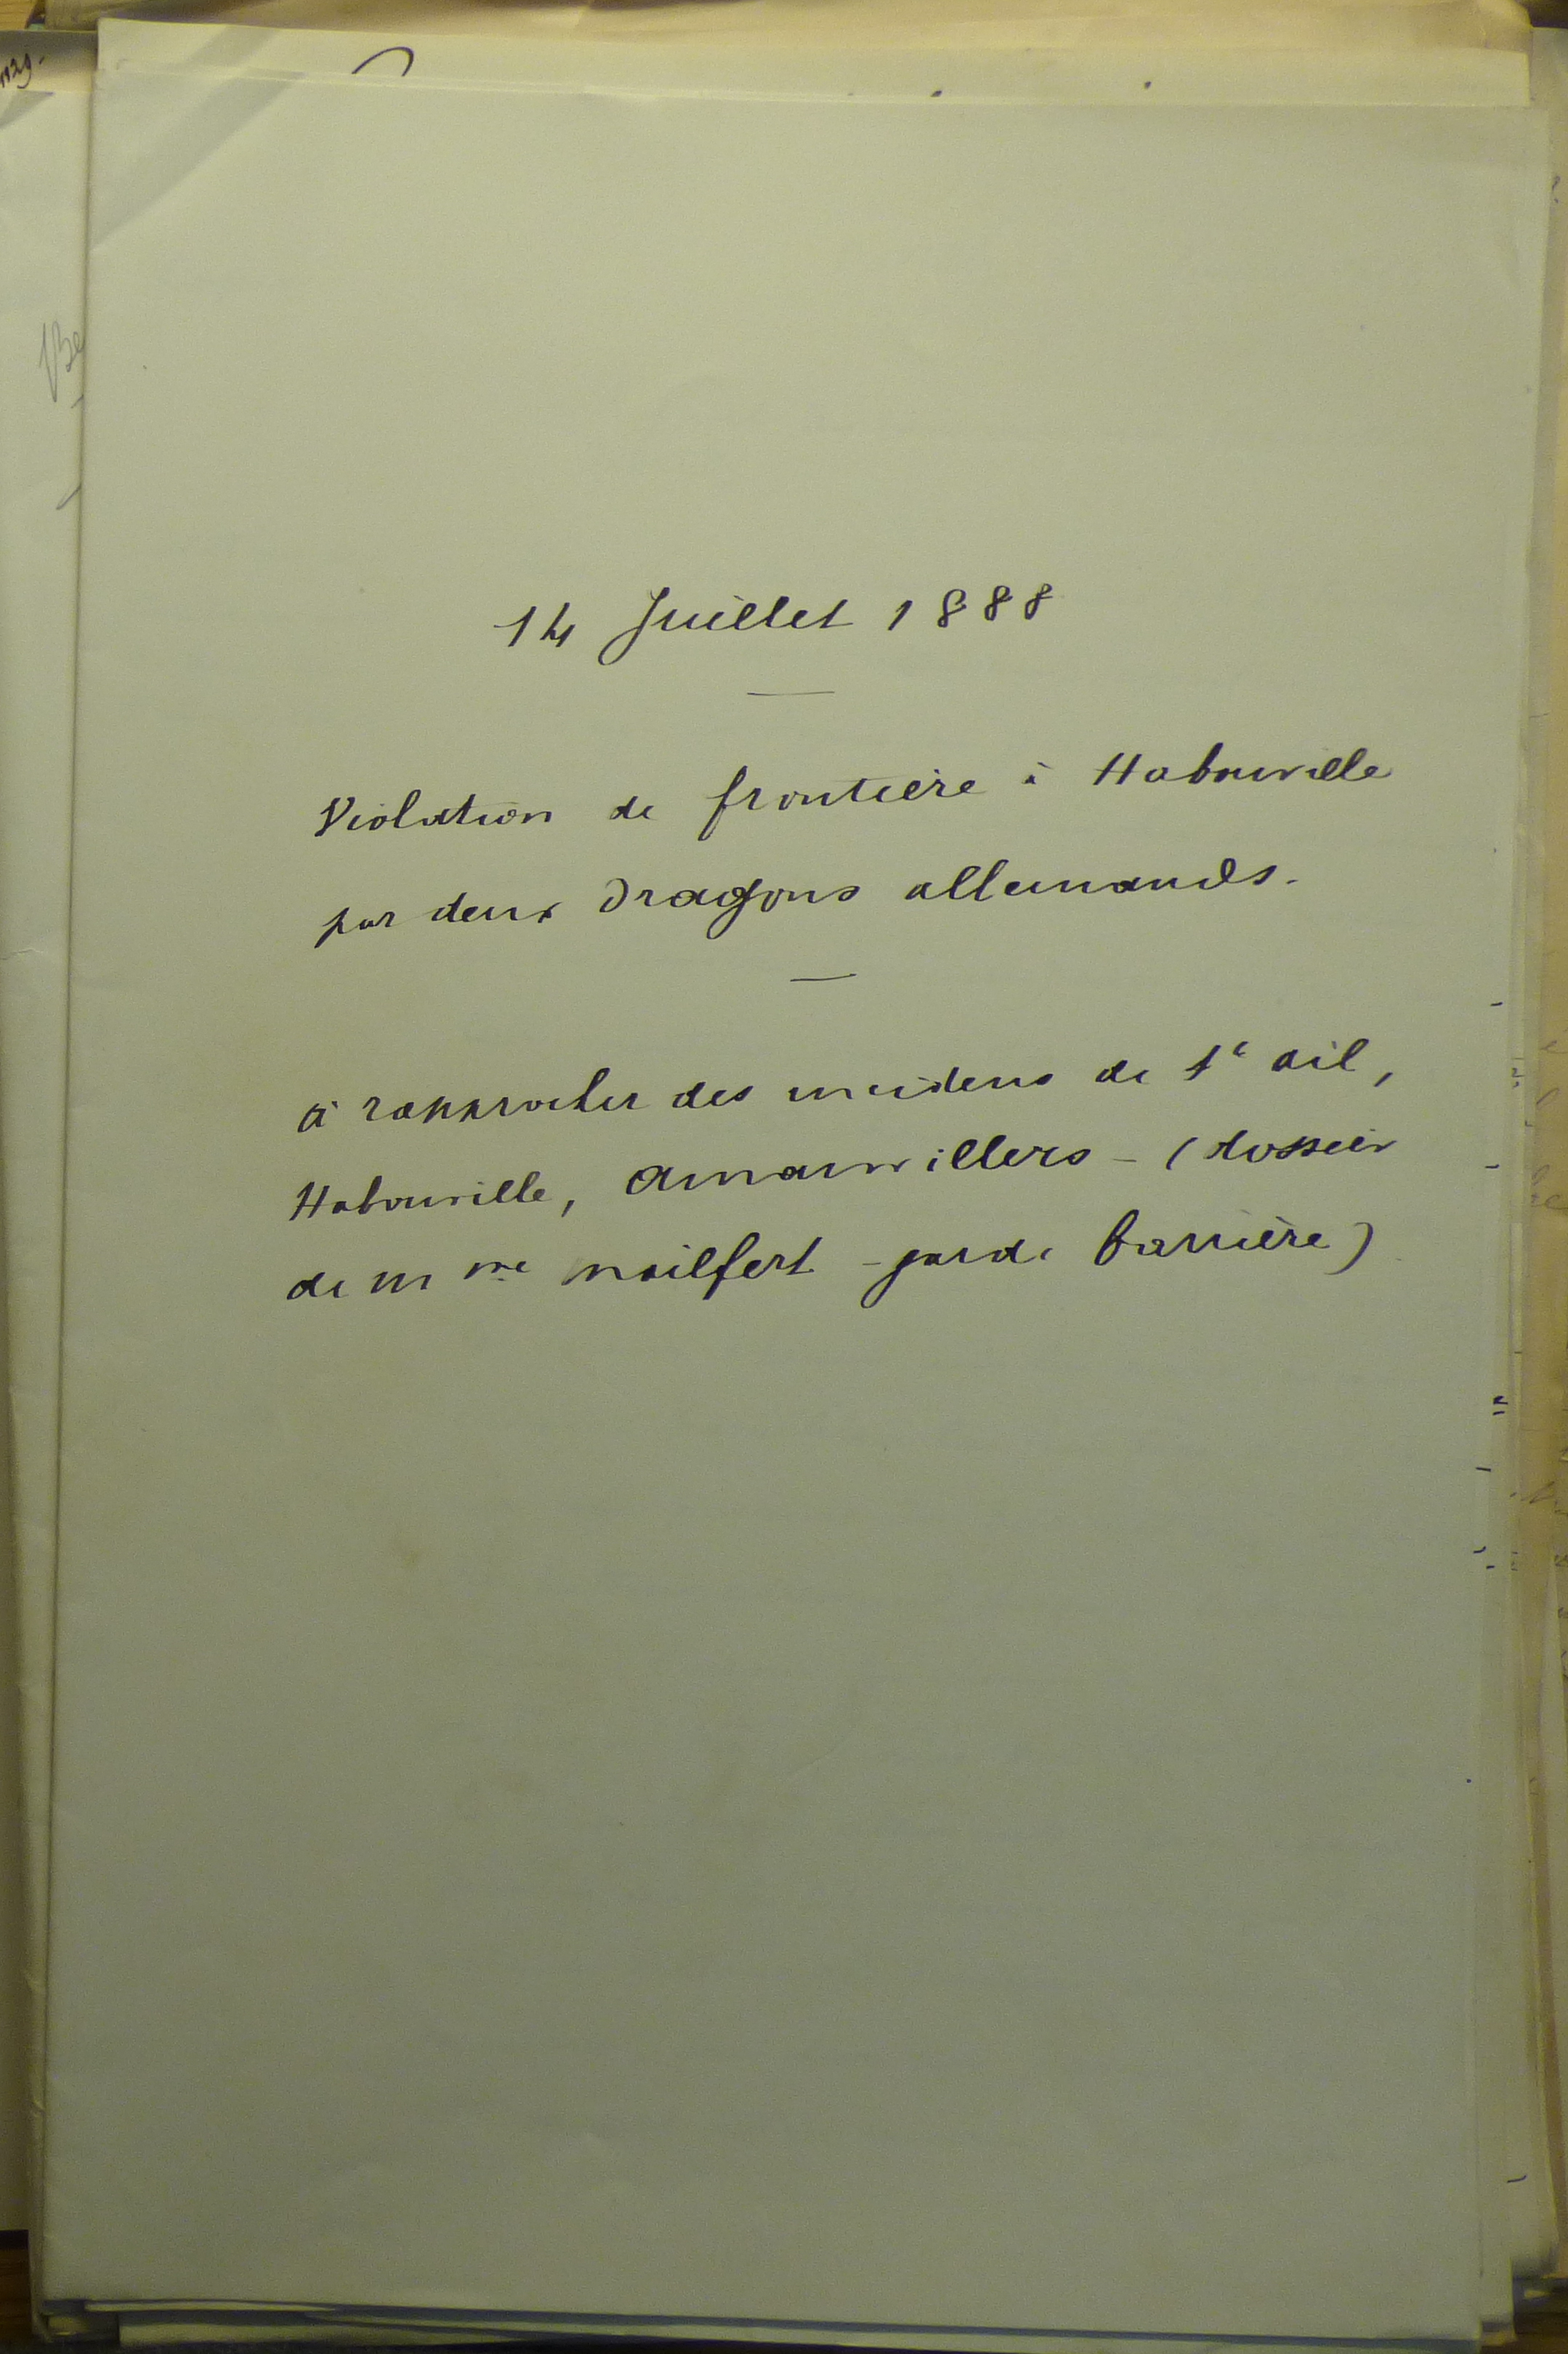 14 Juillet 1888
Violation de frontière à Habouville
par deux Dragons allemands.
à rapprocher des incidens de St ail,
Habouville, Amanvillers - (dossier
de Mme Mailfert - garde barrière)